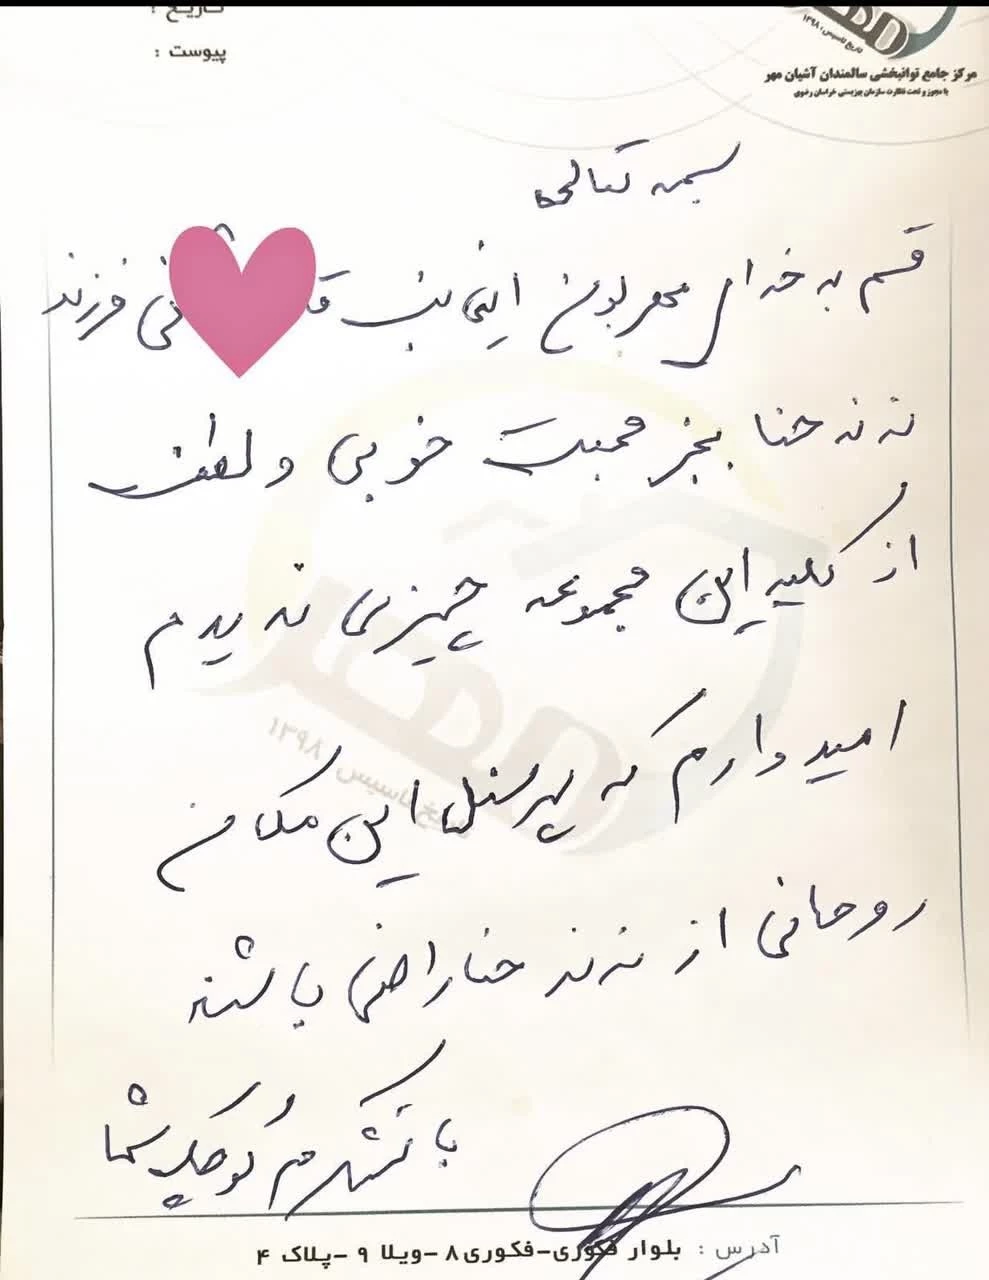 تاریخ :
پیوست :
مهر
تاریخ تاسیس : ۱۳۹۸
مرکز جامع توانبخشی سالمندان آشیان مهر
با مجوز و تحت نظارت سازمان بهزیستی خراسان رضوی
بسمه تعالی
قسم به خدای مهربون اینجانب فرزند
ننه حنا بجز محبت خوبی و لطف
از کلیه این مجموعه چیزی ندیدم
امیدوارم که پرسنل این مکان
روحانی از ننه حنا راضی باشند
با تشکر کوچک شما
مهر
تاریخ تاسیس ۱۳۹۸
آدرس : بلوار فکوری-فکوری ۸ -ویلا ۹ -پلاک ۴